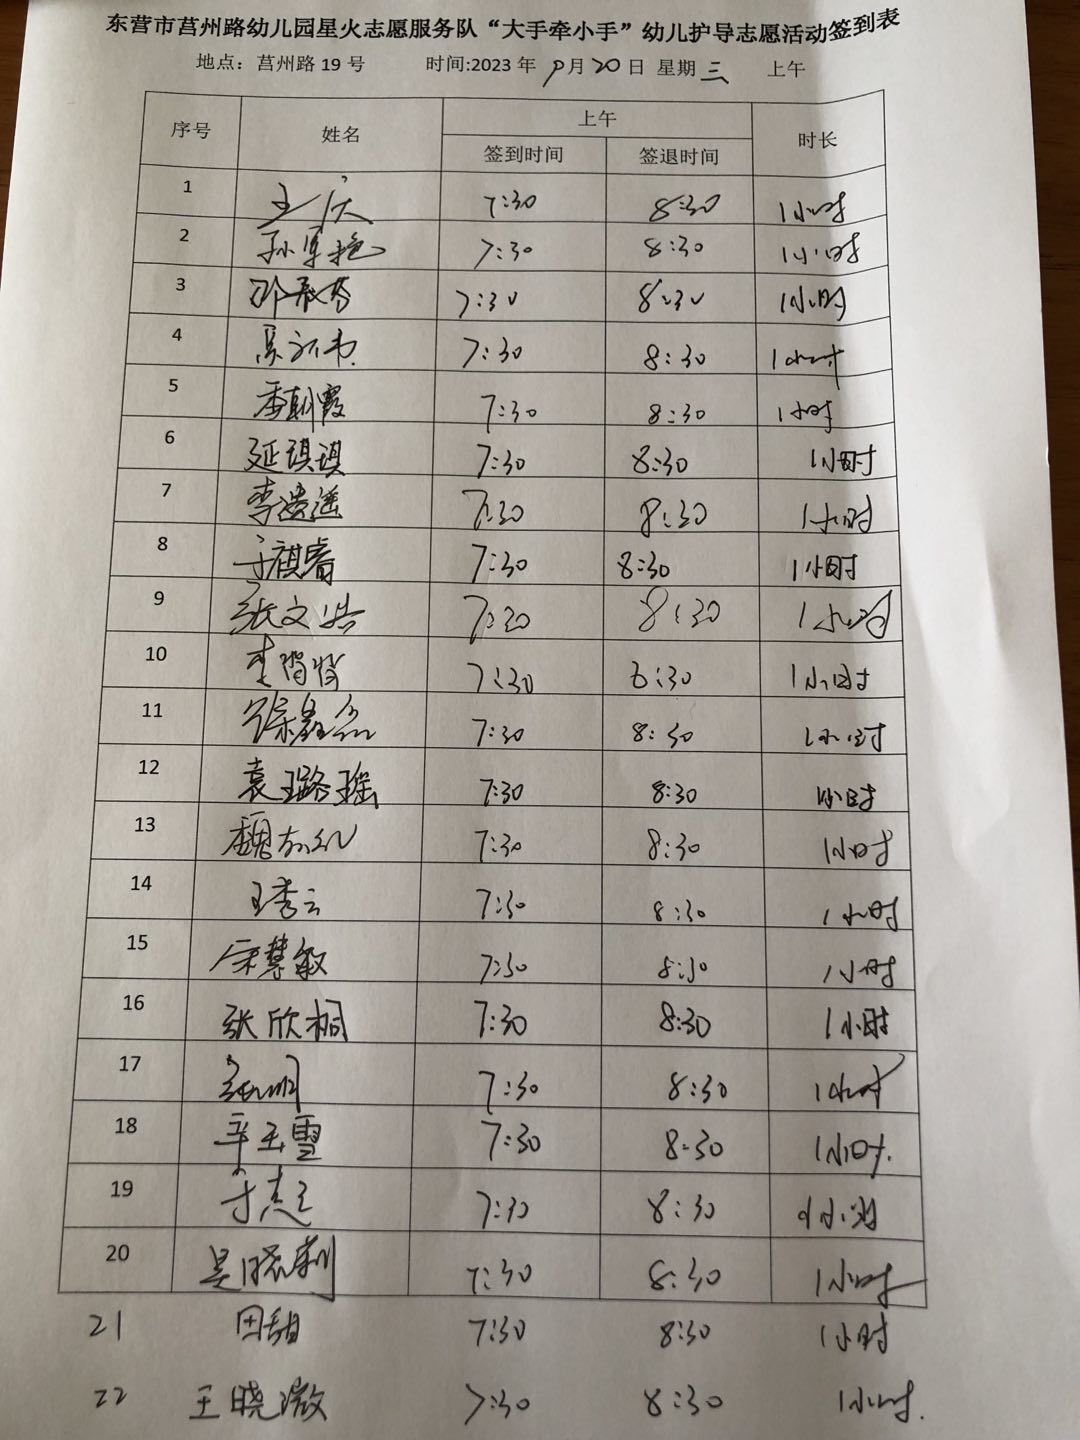 东营市莒州路幼儿园星火志愿服务队“大手牵小手”幼儿护导志愿活动签到表
地点：莒州路 19 号 时间:2023 年 9月 20 日 星期 三 上午
序号 姓名 上午 时长
签到时间 签退时间
1 王庆 7:30 8:30 1小时
2 孙军艳 7:30 8:30 1小时
3 7:30 8:30 1小时
4 7:30 8:30 1小时
5 季朝霞 7:30 8:30 1小时
6 延琪琪 7:30 8:30 1小时
7 李潇遥 7:30 8:30 1小时
8 于祺睿 7:30 8:30 1小时
9 张文浩 7:30 8:30 1小时
10 7:30 8:30 1小时
11 徐鑫磊 7:30 8:30 1小时
12 袁璐瑶 7:30 8:30 1小时
13 7:30 8:30 1小时
14 王秀云 7:30 8:30 1小时
15 宋慧敏 7:30 8:30 1小时
16 张欣桐 7:30 8:30 1小时
17 7:30 8:30 1小时
18 辛玉雪 7:30 8:30 1小时
19 7:30 8:30 1小时
20 吴晓莉 7:30 8:30 1小时
21 田甜 7:30 8:30 1小时
22 王晓薇 7:30 8:30 1小时.